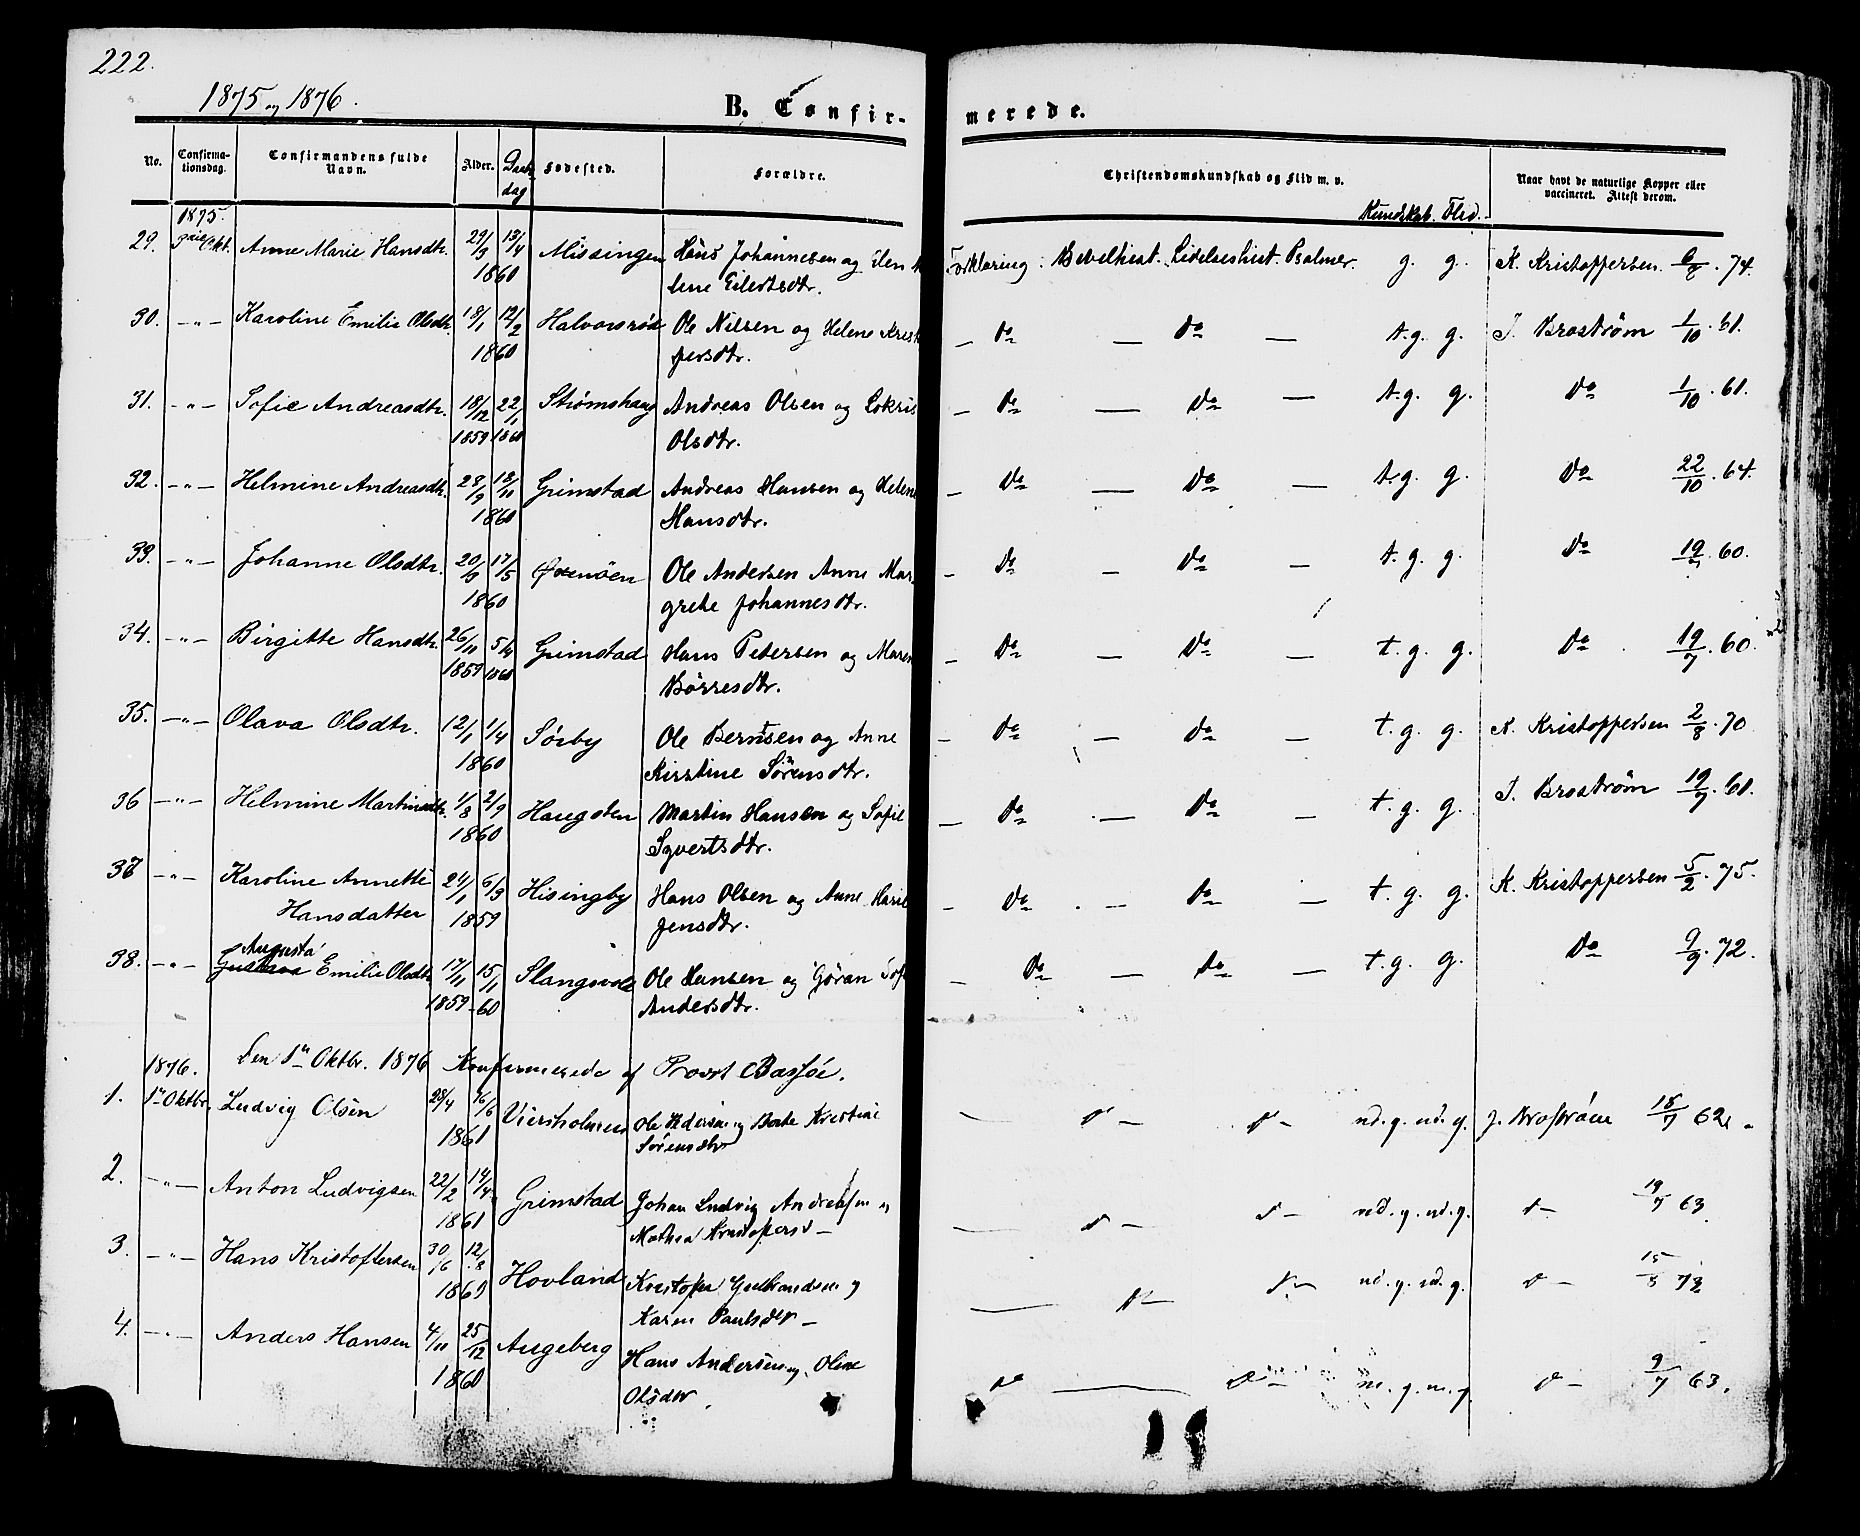 222.
1875 og 1876.
B. Confir-
merede.
No. Confirma-tionsdag. Confirmandens fulde Navn. Alder. Daabsdag Fødested. Forældre. Christendomskundskab og Flid m. v. Kundskab. Flid. Naar havt de naturlige Kopper eller vaccineret. Attest derom.
1875.
29. 3die Okt. Anne Marie Hansdtr. 29/3 13/4 Missingen Hans Johannesen og Elen Forklaring. Bibelhist. Lidelseshist. Psalmer. g. g. K. Kristoffersen. 74.
1860 lene Eilertsdtr.
30. -"- Karoline Emilie Olsdtr. 18/1 12/2 Halvorsrød Ole Nilsen og Helene Krist — do — do — t.g. g. J. Brostrøm 1/10. 61.
1860 fersdtr.
31. -"- Sofie Andreasdtr. 18/12 22/1 Strømshaug Andreas Olsen og Lokris — do — do — t.g. g. do 1/10. 61.
1859 1860 Olsdtr.
32. -"- Helmine Andreasdtr. 28/9 18/11 Grimstad Andreas Hansen og Helene — do — do — t.g. g. do 22/10. 64.
1860 Hansdtr.
33. -"- Johanne Olsdtr. 17/5 Ole Andersen Anne Mar- — do — do — t.g. g. do 19/7. 60.
1860 grete Johannesdtr.
34. -"- Birgitte Hansdtr. 26/11 5/4 Grimstad Hans Petersen og Maren — do — do — t.g. g. do 19/7. 60.
1859 1860 Børresdtr.
35. -"- Olava Olsdtr. 12/1 1/4 Sørby Ole Berntsen og Anne — do — do — t.g. g. K. Kristoffersen 2/8. 70
1860 Kirstine Sørensdtr.
36 -"- Helmine Martinsdtr. 1/8 2/9 Haugsten Martin Hansen og Sofie — do — do — t.g. g. J. Brostrøm 19/7. 61.
1860 Syvertsdtr.
37 -"- Karoline Annette 24/1 6/3 Hisingby Hans Olsen og Anne Marie — do — do — t.g. g. K. Kristoffersen 5/2. 75.
Hansdatter 1859 Jensdtr.
Augusta
38. -"- Gustava Emilie Olsdtr. 17/11 15/1 Slangsvold Ole Hansen og Gøran Sof — do — do — t.g. g. do 9/9. 72.
1859 -60 Andersdtr.
1876. Den 1ste Oktbr. 1876 Konfirmerede af Provst Bassøe.
1. 1ste Oktbr. Ludvig Olsen 28/4 16/6 Viersholmen Ole Pedersen og Berte Kristine — d — d — md. g. md. g. J. Brostrøm 18/7 62.
1861 Sørensdtr
2. -"- Anton Ludvigsen 22/2 14/4 Grimstad Johan Ludvig Andreasen og — d — d — md. g. md. g. d — 19/7 63.
1861 Mathea Kristofersd —
3. -"- Hans Kristoffersen 30/6 12/8 Hovland Kristofer Gulbrandsen og — d — d — md. g. md. g. d — 15/8
Karen Paulsdtr —
4. -"- Anders Hansen 4/11 25/12 Augeberg Hans Andersen og Oline do — d — m. g. m. g. d — 9/7 63.
1860 Olsdtr